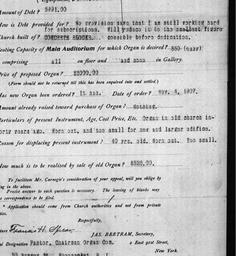 Amount of Debt? $491.00
How is Debt provided for? No provision save that I am still working hard
for subscriptions. Will reduce it to the smallest figure
Church built of? CONCRETE BLOCKS. possible before dedication.
Seating Capacity of Main Auditorium for which Organ is desired? 550 (easy)
comprising all on floor and none in Gallery.
Price of proposed Organ? $2000.00
(Form should not be returned till this has been required into and settled.)
Has new Organ been ordered? Date of order? Nov. 4, 1907.
Amount already raised toward purchase of Organ? Nothing.
Particulars of present Instrument, Age, Cost Price, Etc. Organ in old church
years ago. Worn out, and too small for new and larger edifice.
Reason for displacing present instrument? 40 yrs. old. Worn out. Too small.
How much is to be realised by sale of old Organ? $500.00.
To facilitate Mr. Carnegie's consideration of your appeal, will you oblige by
in the above.
Precise answer to each question is necessary. The leaving of blanks may
correspondence to be filed.
* Application should come from Church authorities and not from private
Respectfully,
JAS. BERTRAM, Secretary,
and Designation Pastor, Chairman Organ Com. 2 East 91st Street,
New York